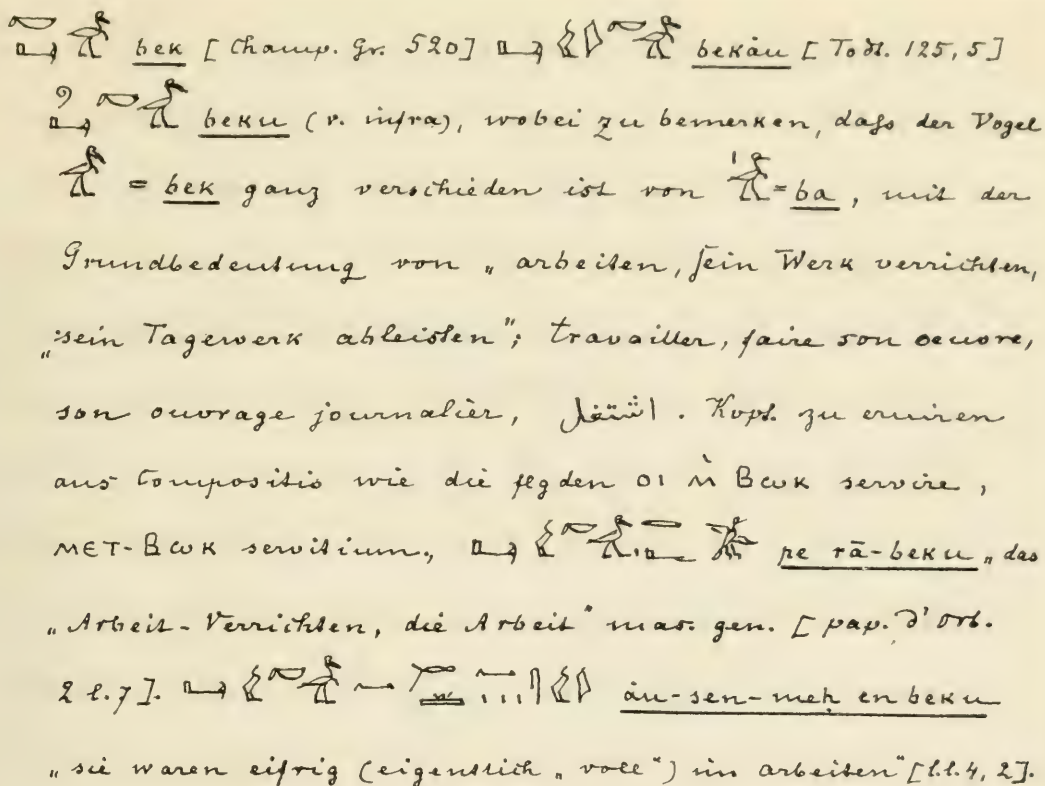 bek [Champ. Gr. 520] bekàu [Todt. 125, 5]
beku (v. infra), wobei zu bemerken, daſs der Vogel
= bek ganz verschieden ist von = ba, mit der
Grundbedeutung von „arbeiten, sein Werk verrichten,
„sein Tagewerk ableisten"; travailler, faire son oeuvre,
son ouvrage journalier, اشتغل. Kopt. zu eruiren
aus Compositis wie die flgden ΟΙ Ⲙ̀ ΒⲰΚ servire,
ⲘΕΤ-ΒⲰΚ servitium, pe rā-beku „das
„Arbeit-Verrichten, die Arbeit" mas. gen. [pap. d'Orb.
2 l. 7]. àu-sen-meḥ en beku
„sie waren eifrig (eigentlich „voll") im arbeiten" [l.l. 4, 2].